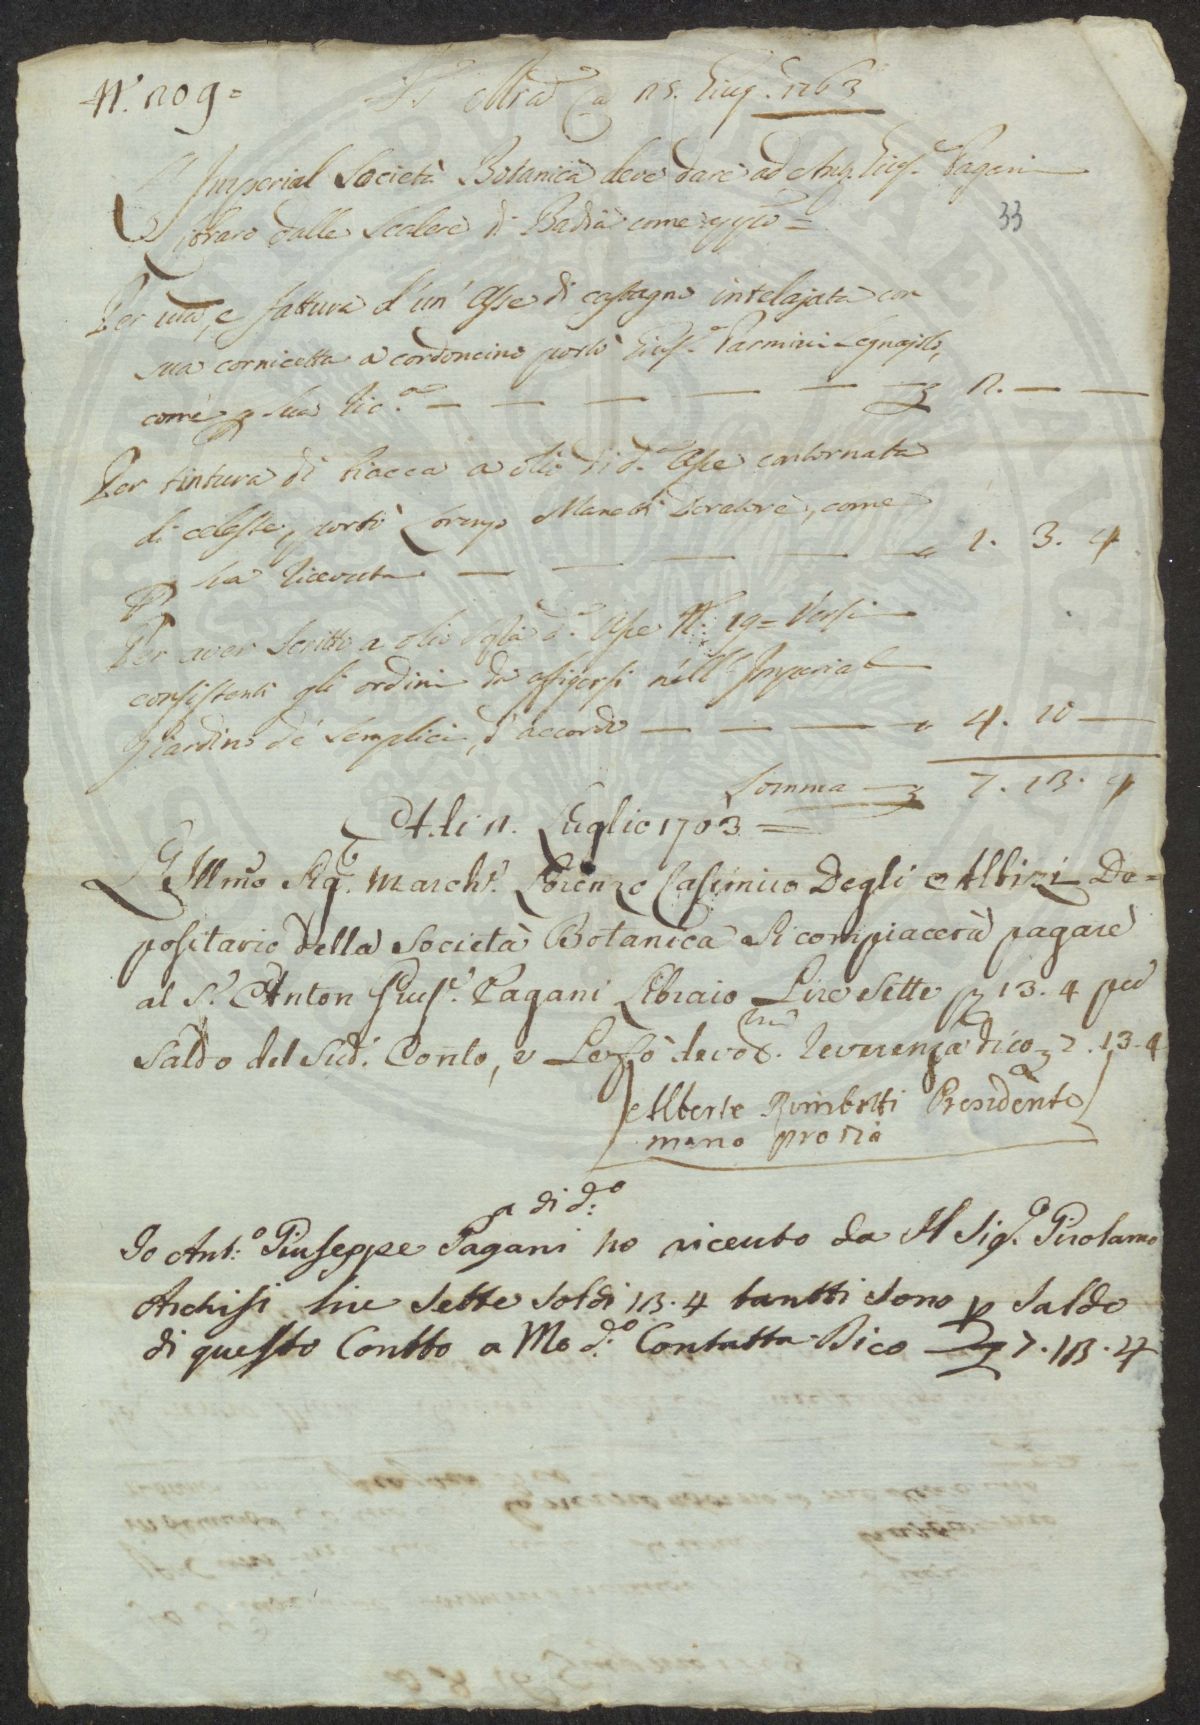 N.° 209 =
a 25. Giug.° 1763
L' Imperial Società Botanica deve dare ad Ant. Gius.e Pagani
Libraro dalle Scalere di Badia come appo =
33
Per vta, e fattura d'un' Asse di castagno intelajata con
sua cornicetta a cordoncino portò Gius.e Parmini Legnajolo,
come p sua Ric.ta — — — — — — £ 2. — —
Per tintura di biacca a olio di d.a Asse contornata
di celeste, portò Lorenzo Manetti Doratore, come
p sua Ricevuta — — — — — " 1. 3. 4
Per aver scritto a olio sopra d.a Asse N.° 19 = Versi
consistenti gli ordini da affigersi nell' Imperial
Giardino de' Semplici, d'accordo — — — — " 4. 10 —
Somma £ 7. 13. 4
A di 11. Luglio 1763 =
L' Illmo Sig.e March.e Lorenzo Casimiro Degli Albizi De=
positario della Società Botanica si compiacerà pagare
al S.r Anton Gius.e Pagani Libraio Lire Sette p 13. 4 per
Saldo del Sud.o Conto, e Le fò devot.ma Reverenza dico £ 7. 13. 4
Alberto Rimbotti Presidente
mano propria
a di d.o
Io Ant.o Giuseppe Pagani ho riceuto da Il Sig.e Girolamo
Archisi lire Sette Soldi 13. 4 tantti Sono p Saldo
di questo Contto a Me d.o Contatta Dico £ 7. 13. 4